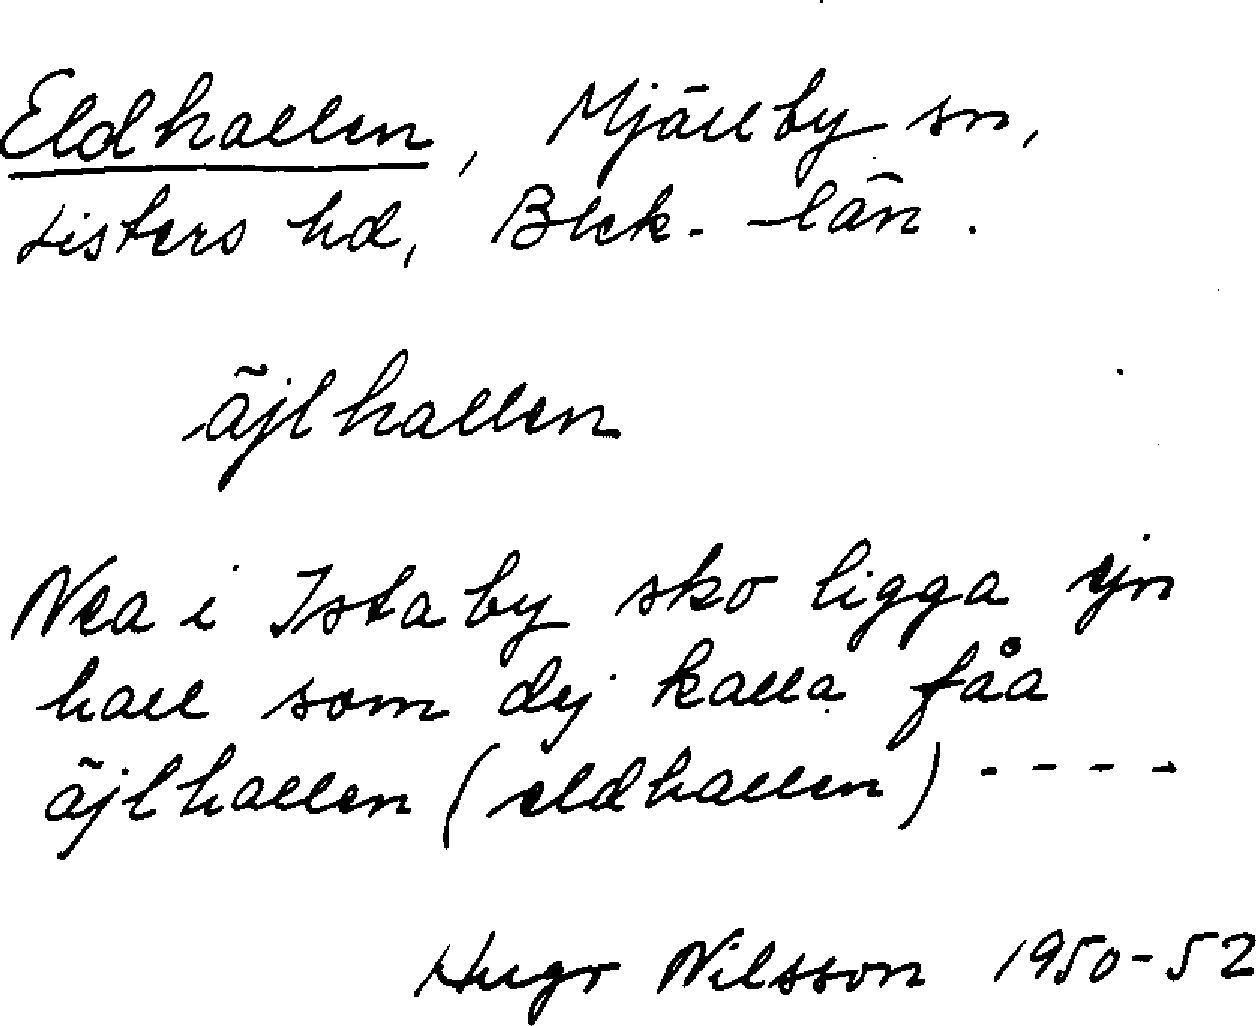 Eldhallen, Mjällby sn,
Listers hd, Blek. län.
äjlhallen
Nea i Istaby sko ligga ejn
hall som dej kalla fåa
äjlhallen (eldhallen) - - - -
Hugo Nilsson 1950-52